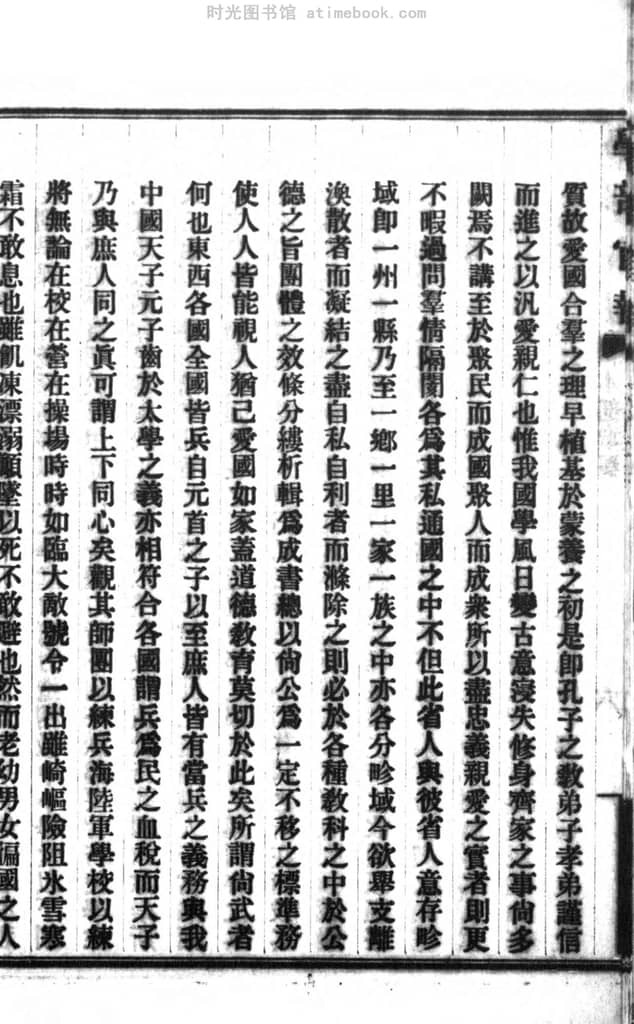 时光图书馆 atimebook.com
學部官報
質故愛國合羣之理早植基於蒙養之初是即孔子之教弟子孝弟謹信
而進之以汎愛親仁也惟我國學風日變古意浸失修身齊家之事尙多
闕焉不講至於聚民而成國聚人而成衆所以盡忠義親愛之實者則更
不暇過問羣情隔閡各爲其私通國之中不但此省人與彼省人意存畛
域即一州一縣乃至一鄉一里一家一族之中亦各分畛域今欲舉支離
渙散者而凝結之盡自私自利者而滌除之則必於各種敎科之中於公
德之旨團體之效條分縷析輯爲成書總以尙公爲一定不移之標準務
使人人皆能視人猶己愛國如家蓋道德敎育莫切於此矣所謂尙武者
何也東西各國全國皆兵自元首之子以至庶人皆有當兵之義務與我
中國天子元子齒於太學之義亦相符合各國謂兵爲民之血稅而天子
乃與庶人同之眞可謂上下同心矣觀其師團以練兵海陸軍學校以練
將無論在校在營在操場時時如臨大敵號令一出雖崎嶇險阻氷雪寒
霜不敢息也雖飢凍漂溺顚墜以死不敢避也然而老幼男女徧國之人